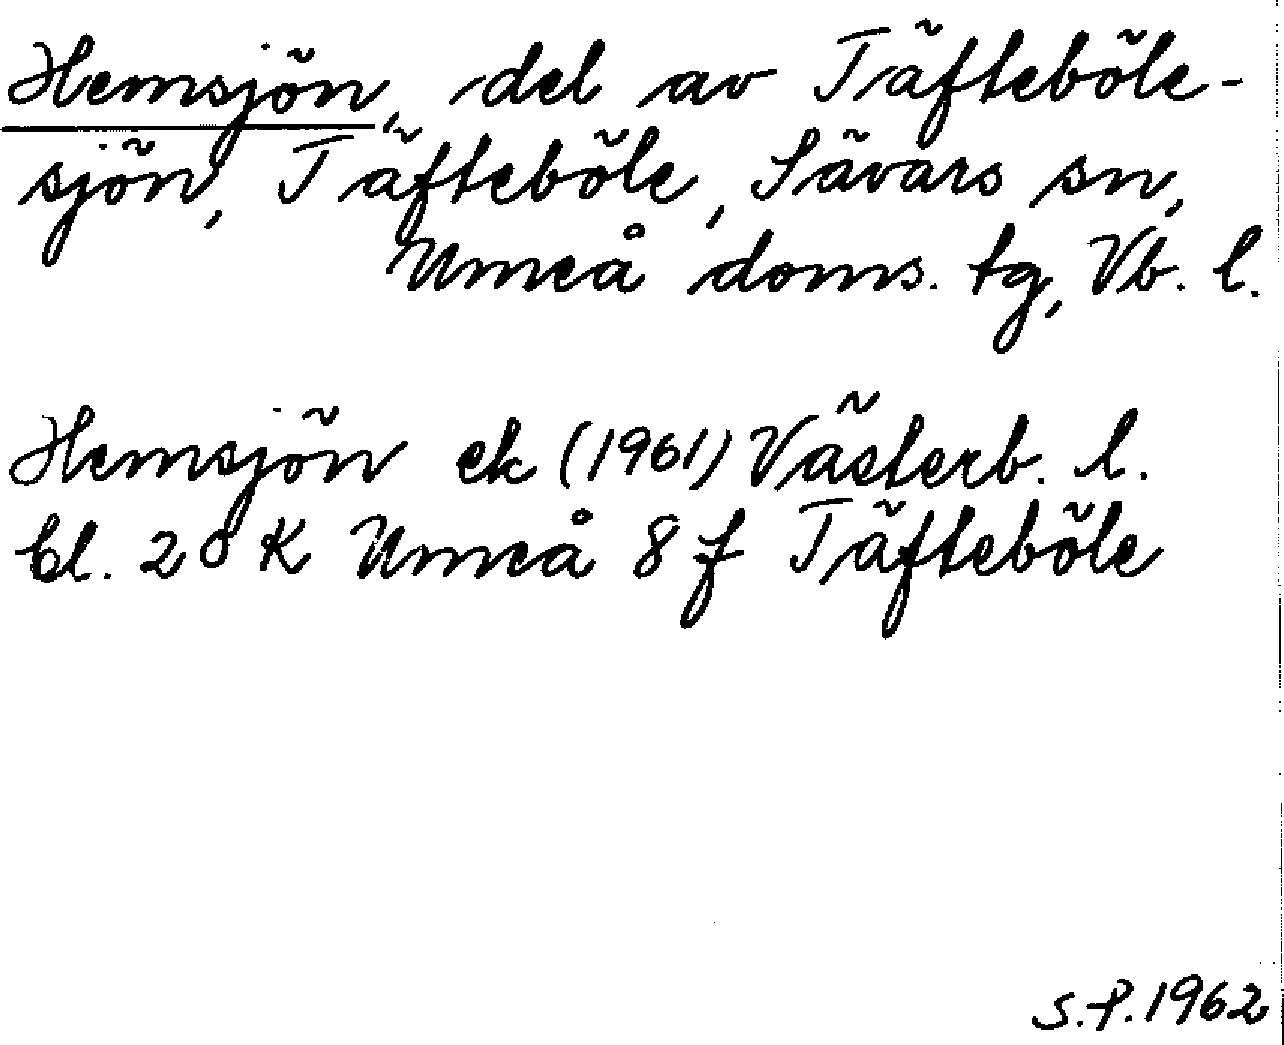 Hemsjön, del av Täfteböle-
sjön, Täfteböle, Sävars sn,
Umeå doms. tg, Vb. l.
Hemsjön ek (1961) Västerb. l.
bl. 20 K Umeå 8 f Täfteböle
S.P. 1962